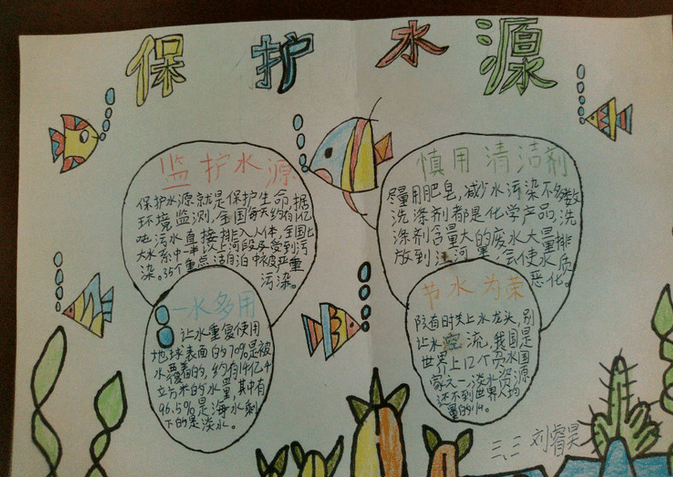 保护水源
监护水源
保护水源就是保护生命,据
环境监测,全国每天约有1亿
吨污水直接排入人体,全国七
大水系中一半以上河段受到污
染。35个重点湖泊中被严重
污染。
慎用清洁剂
尽量用肥皂,减少水污染不多数
洗涤剂都是化学产品,洗
涤剂含量大的废水大量排
放到江河里,会使水质
恶化。
一水多用
让水重复使用
地球表面的70%是被
水覆盖的,约有14亿千
立方米的水量,其中有
96.5%是海水剩
下的是淡水。
节水为荣
随时关上水龙头,别
让水空流,我国是
世界上12个贫水国
家之一,淡水资源
还不到世界人均
量的1/4。
三、三 刘睿昊